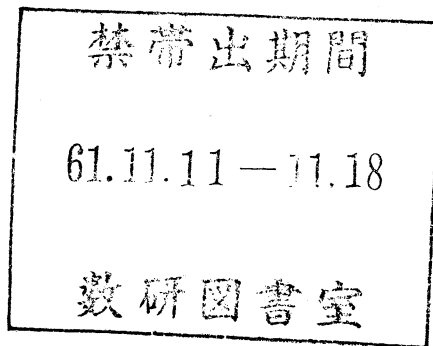 禁帯出期間
61.11.11—11.18
数研図書室